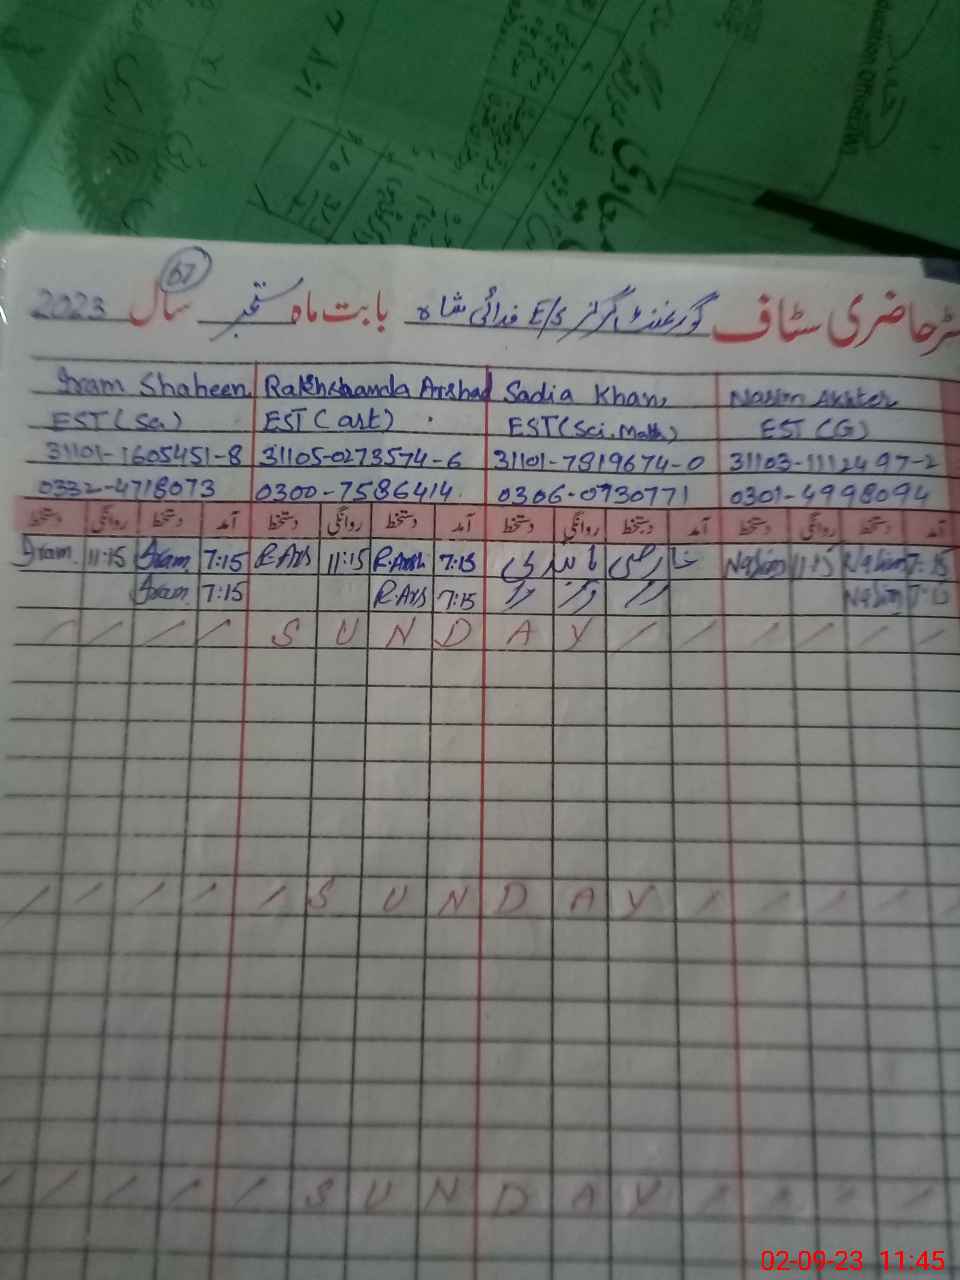 67
رجسٹر حاضری سٹاف گورنمنٹ گرلز E/S فدائی شاہ بابت ماہ ستمبر سال 2023
Iram Shaheen Rakhshaanda Arshad Sadia Khan Nasim Akhter
EST (Sci) EST (art) EST (Sci. Math) EST (G)
31101-1605451-8 31105-0273574-6 31101-7819674-0 31103-1112497-2
0332-4718073 0300-7586414 0306-0730771 0301-4998094
آمد دستخط روانگی دستخط آمد دستخط روانگی دستخط آمد دستخط روانگی دستخط آمد دستخط روانگی دستخط
Iram 11:15 Iram 7:15 R.Ars 11:15 R.Arsh 7:15 Nasim 11:15 Nasim 7:15
Iram 7:15 R.Ars 7:15 Nasim 7:15
SUNDAY
SUNDAY
SUNDAY
02-09-23 11:45